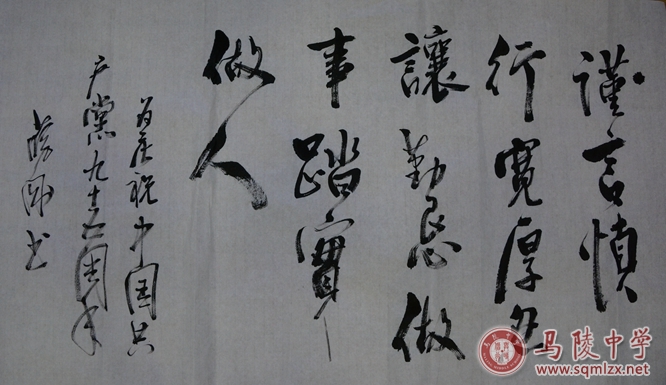 謹言慎
行寬厚礼
讓勤恳做
事踏實
做人
为庆祝中国共
产黨九十五周年
书
马陵中学
www.sqmlzx.net